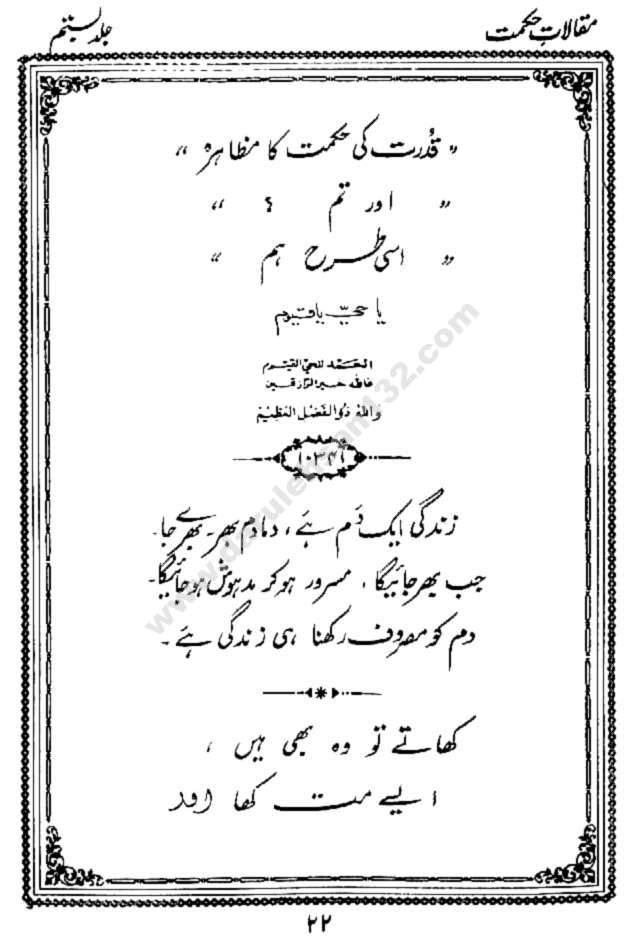 مقالاتِ حکمت
جلد بستم
" قُدرت کی حکمت کا مظاہرہ "
" اور تم ؟ "
" اسی طرح ہم "
یا حیّ یا قیوم
الحمد للحي القيوم
فالله خير الرازقين
والله ذوالفضل العظيم
زندگی ایک دَم ہے، دمادم بھر۔ بھرے جا۔
جب بھر جائیگا، مسرور ہو کر مدہوش ہو جائیگا۔
دم کو مصروف رکھنا ہی زندگی ہے۔
کھاتے تو وہ بھی ہیں ،
ایسے مت کھا اور
۲۲
www.darulehsan132.com